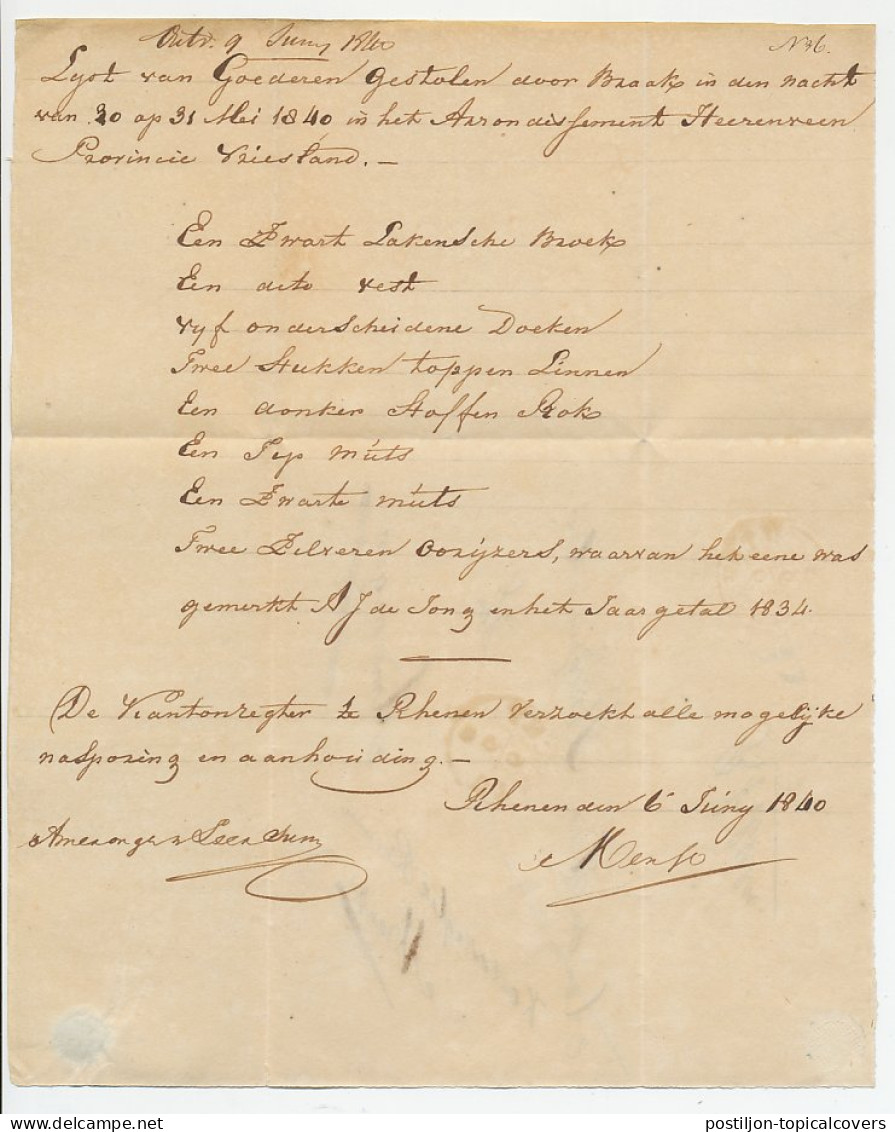 Ontv. 9 Juny 1840
N 36.
Lyst van Goederen gestolen door Braak in den nacht
van 30 op 31 Mei 1840 in het Arrondissement Heerenveen
Provincie Vriesland. —
Een Zwart Lakensche Broek
Een deto vest
vyf onderscheidene Doeken
Twee Stukken toppen Linnen
Een donker Stoffen Rok
Een Sep muts
Een Zwarte muts
Twee Zilveren Oorijzers, waarvan het eene was
gemerkt A J de Jong en het Jaargetal 1834.
De Kantonregter te Rhenen Verzoekt alle mogelijke
nasporing en aanhouding. —
Rhenen den 6 Juny 1840
Amerongen Leersum
postiljon-topicalcovers